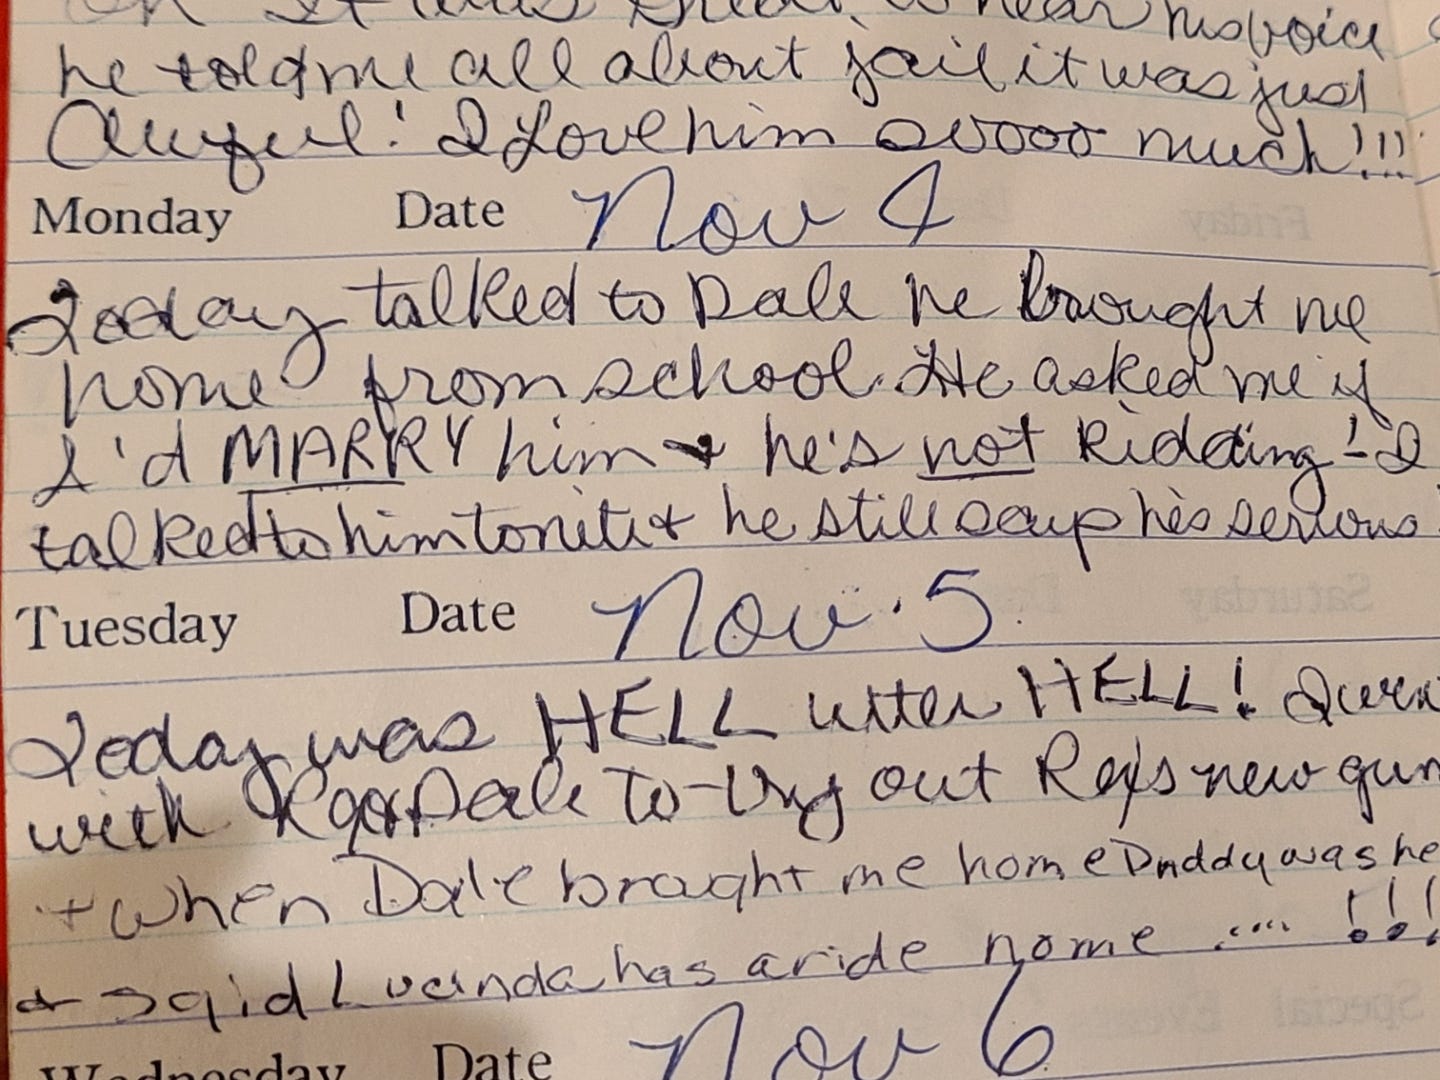 it was great to hear his voice
he told me all about jail it was just
Awful! I Love him soooo much!!!
Monday Date Nov 4
Today talked to Dale he brought me
home from school. He asked me if
I'd MARRY him + he's not kidding! I
talked to him tonite + he still says he's serious
Tuesday Date Nov. 5
Today was HELL utter HELL! I went
with Rex + Dale to try out Rex's new gun
+ when Dale brought me home Daddy was he
+ said Luanda has a ride home .... !!!
Wednesday Date Nov 6
Friday
Saturday
Special Events